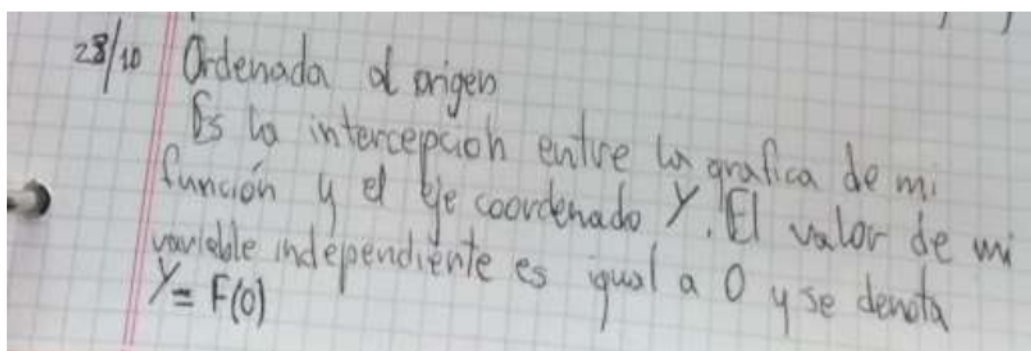 28/10 Ordenada al origen
Es la intercepcion entre la grafica de mi
función y el eje coordenado Y. El valor de mi
variable independiente es igual a 0 y se denota
Y = F(0)